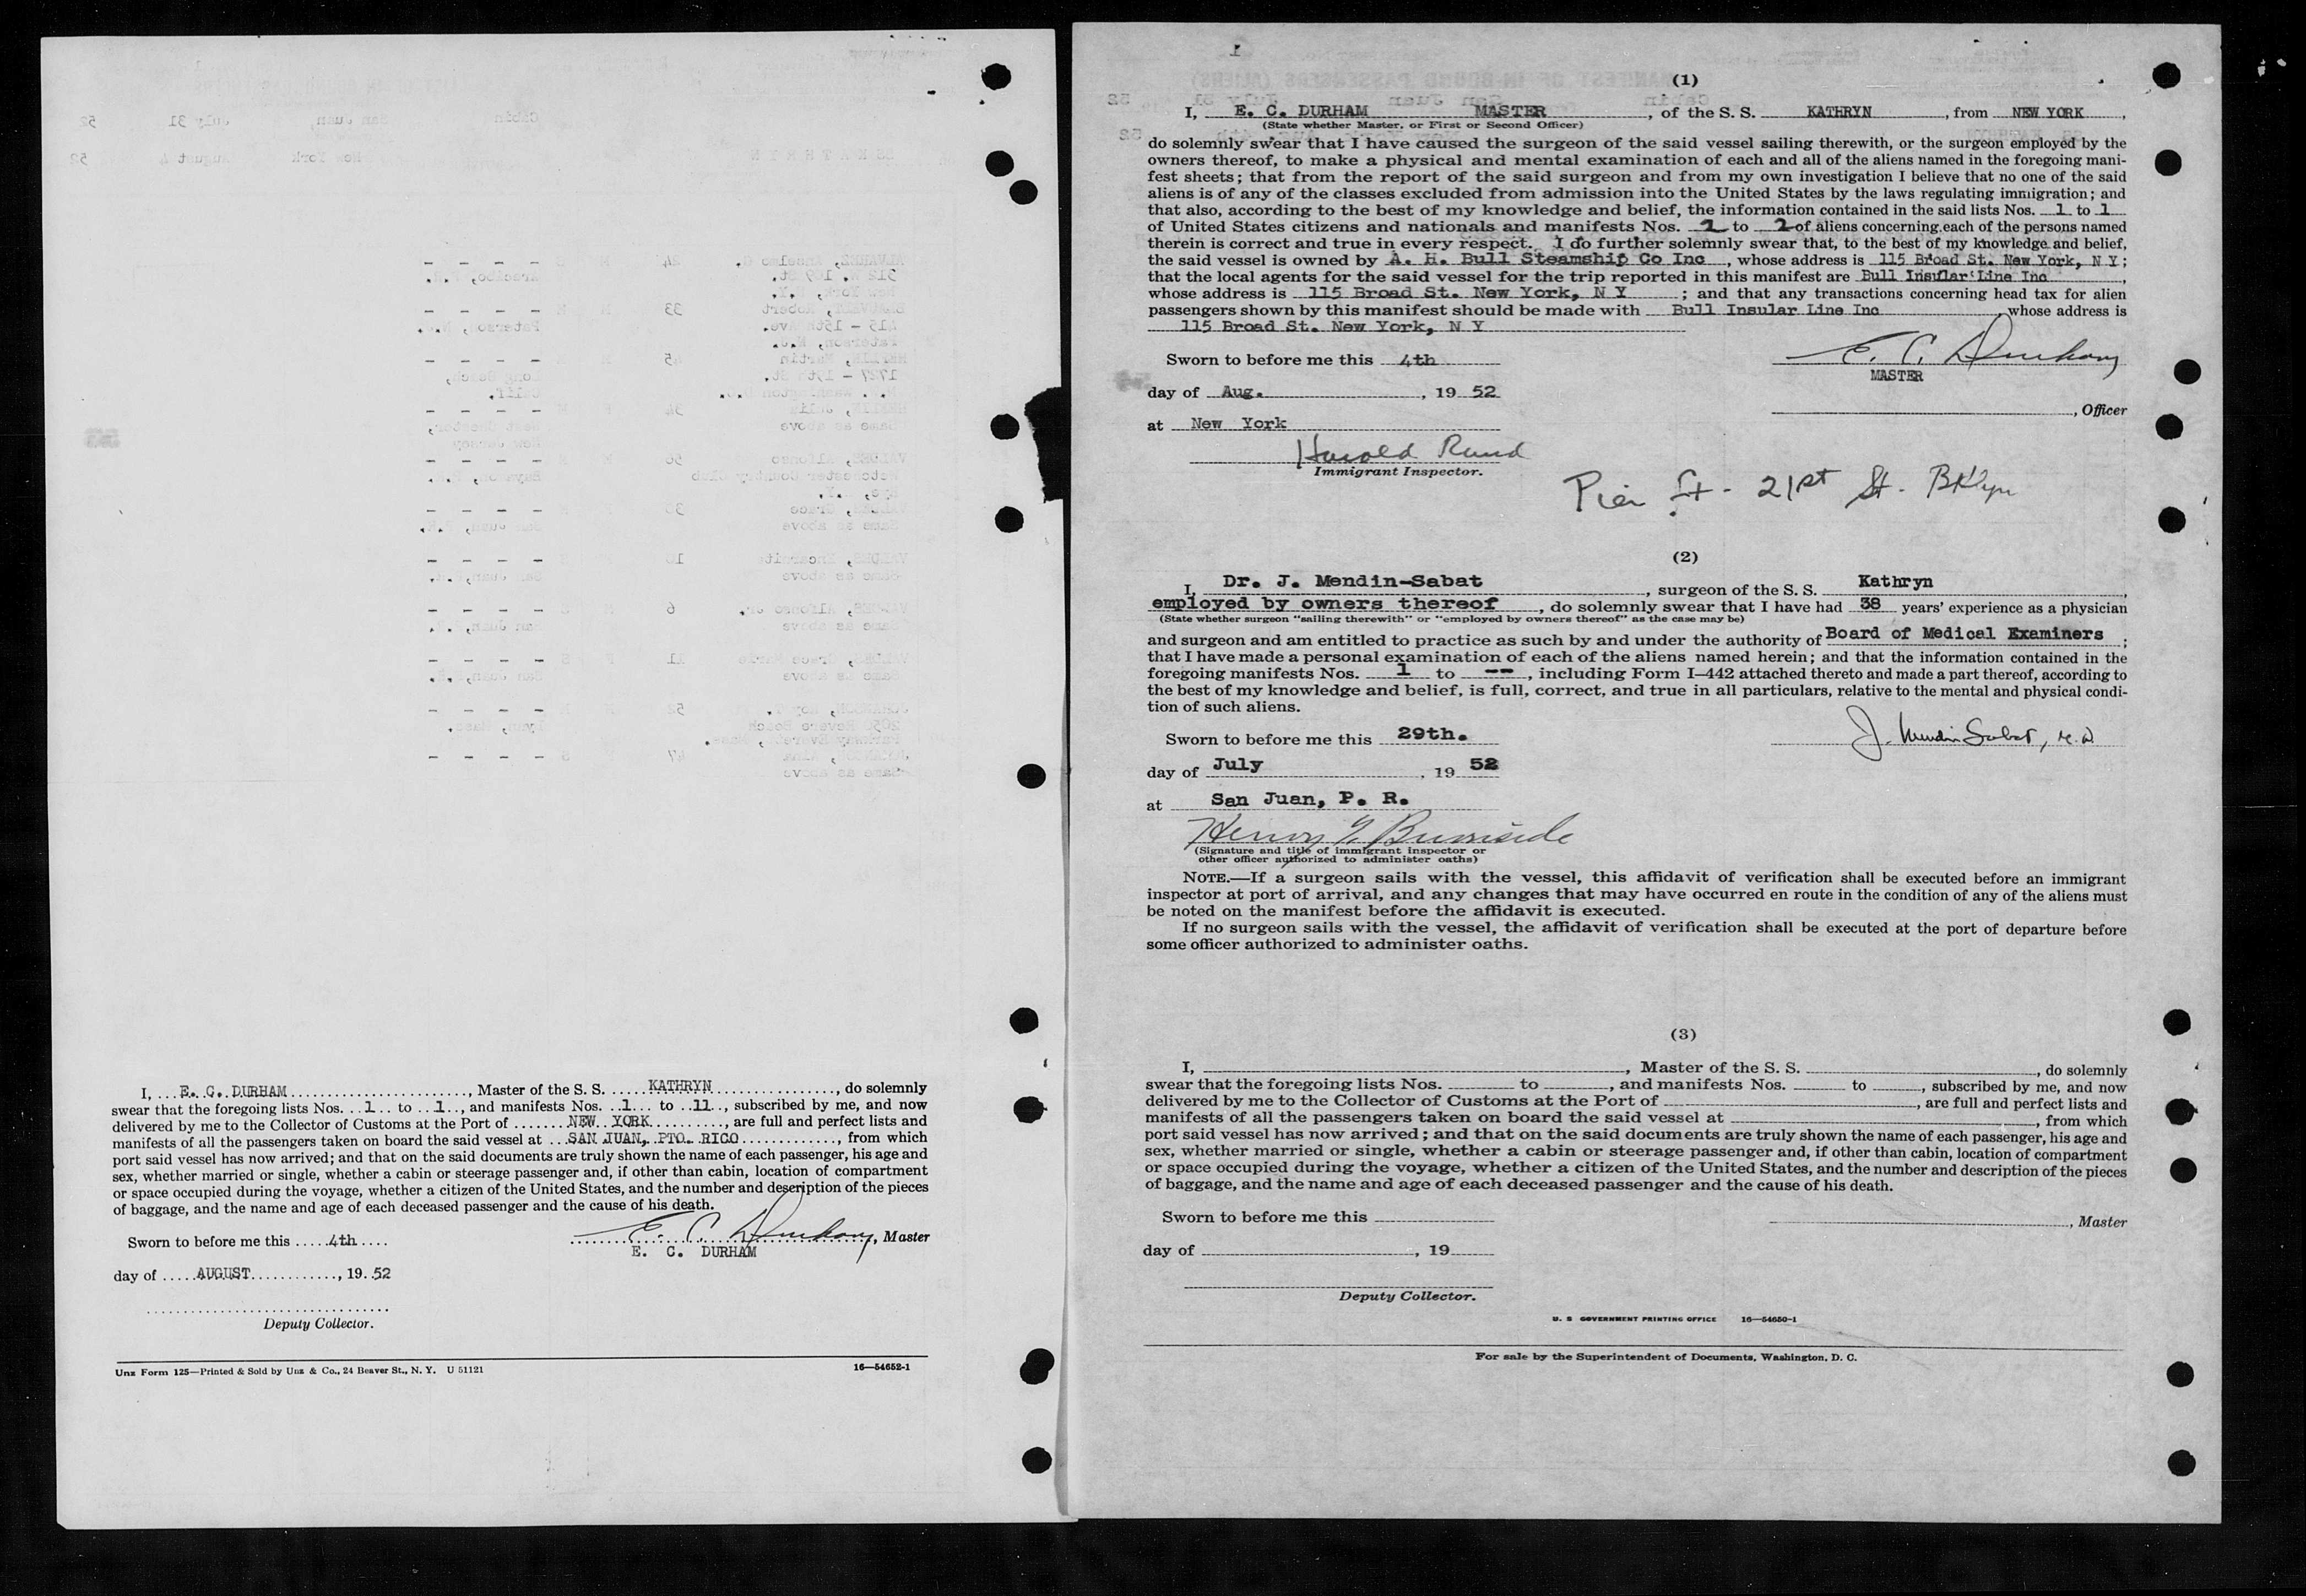 I, E. C. DURHAM, Master of the S. S. KATHRYN, do solemnly
swear that the foregoing lists Nos. 1 to 1, and manifests Nos. 1 to 11, subscribed by me, and now
delivered by me to the Collector of Customs at the Port of NEW YORK, are full and perfect lists and
manifests of all the passengers taken on board the said vessel at SAN JUAN, PTO. RICO, from which
port said vessel has now arrived; and that on the said documents are truly shown the name of each passenger, his age and
sex, whether married or single, whether a cabin or steerage passenger and, if other than cabin, location of compartment
or space occupied during the voyage, whether a citizen of the United States, and the number and description of the pieces
of baggage, and the name and age of each deceased passenger and the cause of his death.
Sworn to before me this 4th
E. C. Durham, Master
E. C. DURHAM
day of AUGUST, 19 52
Deputy Collector.
Unz Form 125—Printed & Sold by Unz & Co., 24 Beaver St., N. Y. U 51121
16—54652-1
1
(1)
I, E. C. DURHAM MASTER, of the S. S. KATHRYN, from NEW YORK,
(State whether Master, or First or Second Officer)
do solemnly swear that I have caused the surgeon of the said vessel sailing therewith, or the surgeon employed by the
owners thereof, to make a physical and mental examination of each and all of the aliens named in the foregoing mani-
fest sheets; that from the report of the said surgeon and from my own investigation I believe that no one of the said
aliens is of any of the classes excluded from admission into the United States by the laws regulating immigration; and
that also, according to the best of my knowledge and belief, the information contained in the said lists Nos. 1 to 1
of United States citizens and nationals and manifests Nos. 2 to 2 of aliens concerning each of the persons named
therein is correct and true in every respect. I do further solemnly swear that, to the best of my knowledge and belief,
the said vessel is owned by A. H. Bull Steamship Co Inc, whose address is 115 Broad St. New York, N Y;
that the local agents for the said vessel for the trip reported in this manifest are Bull Insular Line Inc,
whose address is 115 Broad St. New York, N Y; and that any transactions concerning head tax for alien
passengers shown by this manifest should be made with Bull Insular Line Inc, whose address is
115 Broad St. New York, N Y
Sworn to before me this 4th
E. C. Durham
MASTER
day of Aug., 19 52
, Officer
at New York
Harold Rand
Immigrant Inspector.
Pier ft - 21st St. BKlyn
(2)
I, Dr. J. Mendin-Sabat, surgeon of the S. S. Kathryn,
employed by owners thereof, do solemnly swear that I have had 38 years' experience as a physician
(State whether surgeon "sailing therewith" or "employed by owners thereof" as the case may be)
and surgeon and am entitled to practice as such by and under the authority of Board of Medical Examiners;
that I have made a personal examination of each of the aliens named herein; and that the information contained in the
foregoing manifests Nos. 1 to --, including Form I-442 attached thereto and made a part thereof, according to
the best of my knowledge and belief, is full, correct, and true in all particulars, relative to the mental and physical condi-
tion of such aliens.
Sworn to before me this 29th.
J. Mendin Sabat, M.D.
day of July, 19 52
at San Juan, P. R.
Henry G. Burnside
(Signature and title of immigrant inspector or
other officer authorized to administer oaths)
NOTE.—If a surgeon sails with the vessel, this affidavit of verification shall be executed before an immigrant
inspector at port of arrival, and any changes that may have occurred en route in the condition of any of the aliens must
be noted on the manifest before the affidavit is executed.
If no surgeon sails with the vessel, the affidavit of verification shall be executed at the port of departure before
some officer authorized to administer oaths.
(3)
I, , Master of the S. S. , do solemnly
swear that the foregoing lists Nos. to , and manifests Nos. to , subscribed by me, and now
delivered by me to the Collector of Customs at the Port of , are full and perfect lists and
manifests of all the passengers taken on board the said vessel at , from which
port said vessel has now arrived; and that on the said documents are truly shown the name of each passenger, his age and
sex, whether married or single, whether a cabin or steerage passenger and, if other than cabin, location of compartment
or space occupied during the voyage, whether a citizen of the United States, and the number and description of the pieces
of baggage, and the name and age of each deceased passenger and the cause of his death.
Sworn to before me this
, Master
day of , 19
Deputy Collector.
U. S GOVERNMENT PRINTING OFFICE 16—54650-1
For sale by the Superintendent of Documents, Washington, D. C.